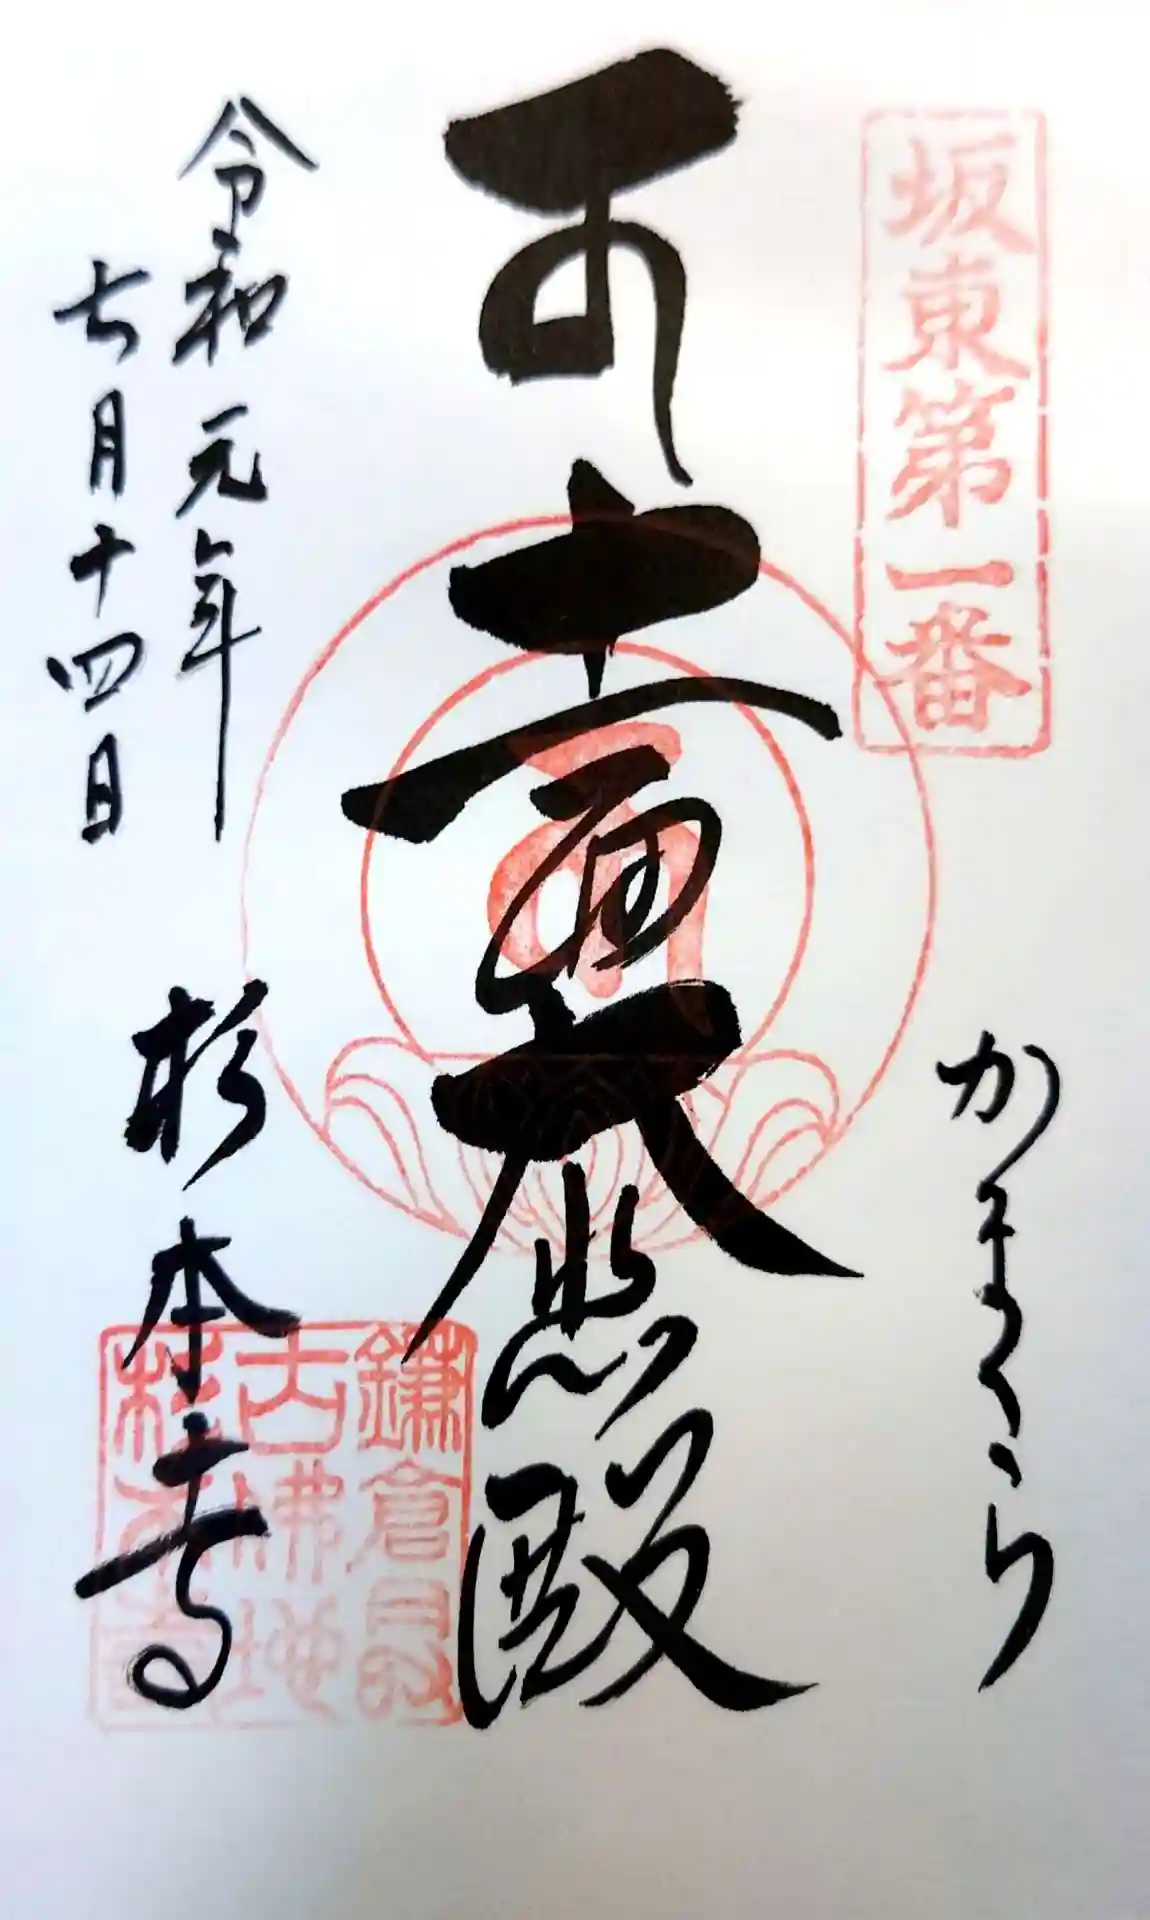 坂東第一番
かまくら
十一面大悲殿
令和元年
七月十四日
杉本寺
鎌倉最
古佛地
杉本寺